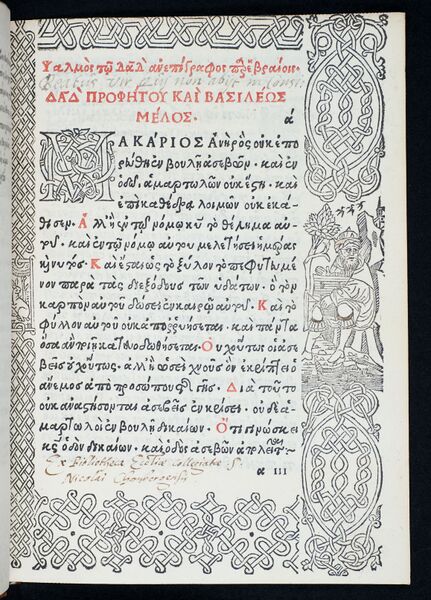 Ψαλμὸς τῷ Δα̅δ ἀνεπίγραφος παρ' ἑβραίοις·
Beatus vir qui non abijt in consi
ΔΑ̅Δ ΠΡΟΦΗΤΟΥ ΚΑΙ ΒΑΣΙΛΕΩΣ
ΜΕΛΟΣ·
α
ΜΑΚΑΡΙΟΣ Ἀνὴρ ὃς οὐκ ἐπο
ρεύθη ἐν βουλῇ ἀσεβῶν· καὶ ἐν
ὁδῷ ἁμαρτωλῶν οὐκ ἔστη· καὶ
ἐπὶ καθέδρᾳ λοιμῶν οὐκ ἐκά
θισεν· Ἀλλ' ἢ ἐν τῷ νόμῳ κυ τὸ θέλημα αὐ
τοῦ· καὶ ἐν τῷ νόμῳ αὐτοῦ μελετήσει ἡμέρας
καὶ νυκτός· Καὶ ἔσται ὡς τὸ ξύλον τὸ πεφυτευμέ
νον παρὰ τὰς διεξόδους τῶν ὑδάτων· ὃ τὸν
καρπὸν αὐτοῦ δώσει ἐν καιρῷ αὐτοῦ· Καὶ τὸ
φύλλον αὐτοῦ οὐκ ἀπορρυήσεται· καὶ πάντα
ὅσα ἂν ποιῇ κατευοδωθήσεται· Οὐχ οὕτως οἱ ἀσε
βεῖς οὐχ οὕτως· ἀλλ' ἢ ὡσεὶ χνοῦς ὃν ἐκρίπτει ὁ
ἄνεμος ἀπὸ προσώπου τῆς γῆς· Διὰ τοῦτο
οὐκ ἀναστήσονται ἀσεβεῖς ἐν κρίσει· οὐδὲ ἁ
μαρτωλοὶ ἐν βουλῇ δικαίων· Ὅτι γινώσκει
κς ὁδὸν δικαίων· καὶ ὁδὸς ἀσεβῶν ἀπολεῖται·
Ex Bibliotheca Eccliae Collegiatae S.
Nicolai
α III